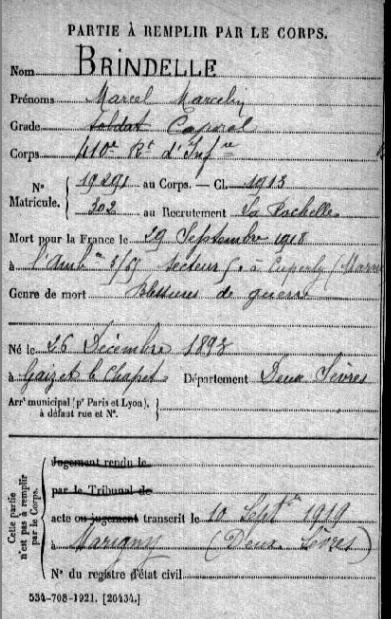 PARTIE À REMPLIR PAR LE CORPS.
Nom BRINDELLE
Prénoms Marcel Marcelin
Grade Soldat Caporal
Corps 410e Rt d'Infie
No Matricule. 19291 au Corps. — Cl. 1913
302 au Recrutement La Rochelle
Mort pour la France le 29 Septembre 1918
à l'Amb ce 3/57 secteur à Cuperly (Marne
Genre de mort Blessures de guerre
Né le 26 Décembre 1893
à Département Deux Sèvres
Arrt municipal (pr Paris et Lyon),
à défaut rue et No.
Cette partie n'est pas à remplir par le Corps.
Jugement rendu le
par le Tribunal de
acte ou jugement transcrit le 10 Septbre 1919
à Marigny (Deux Sèvres)
No du registre d'état civil
534-708-1921. [26434.]